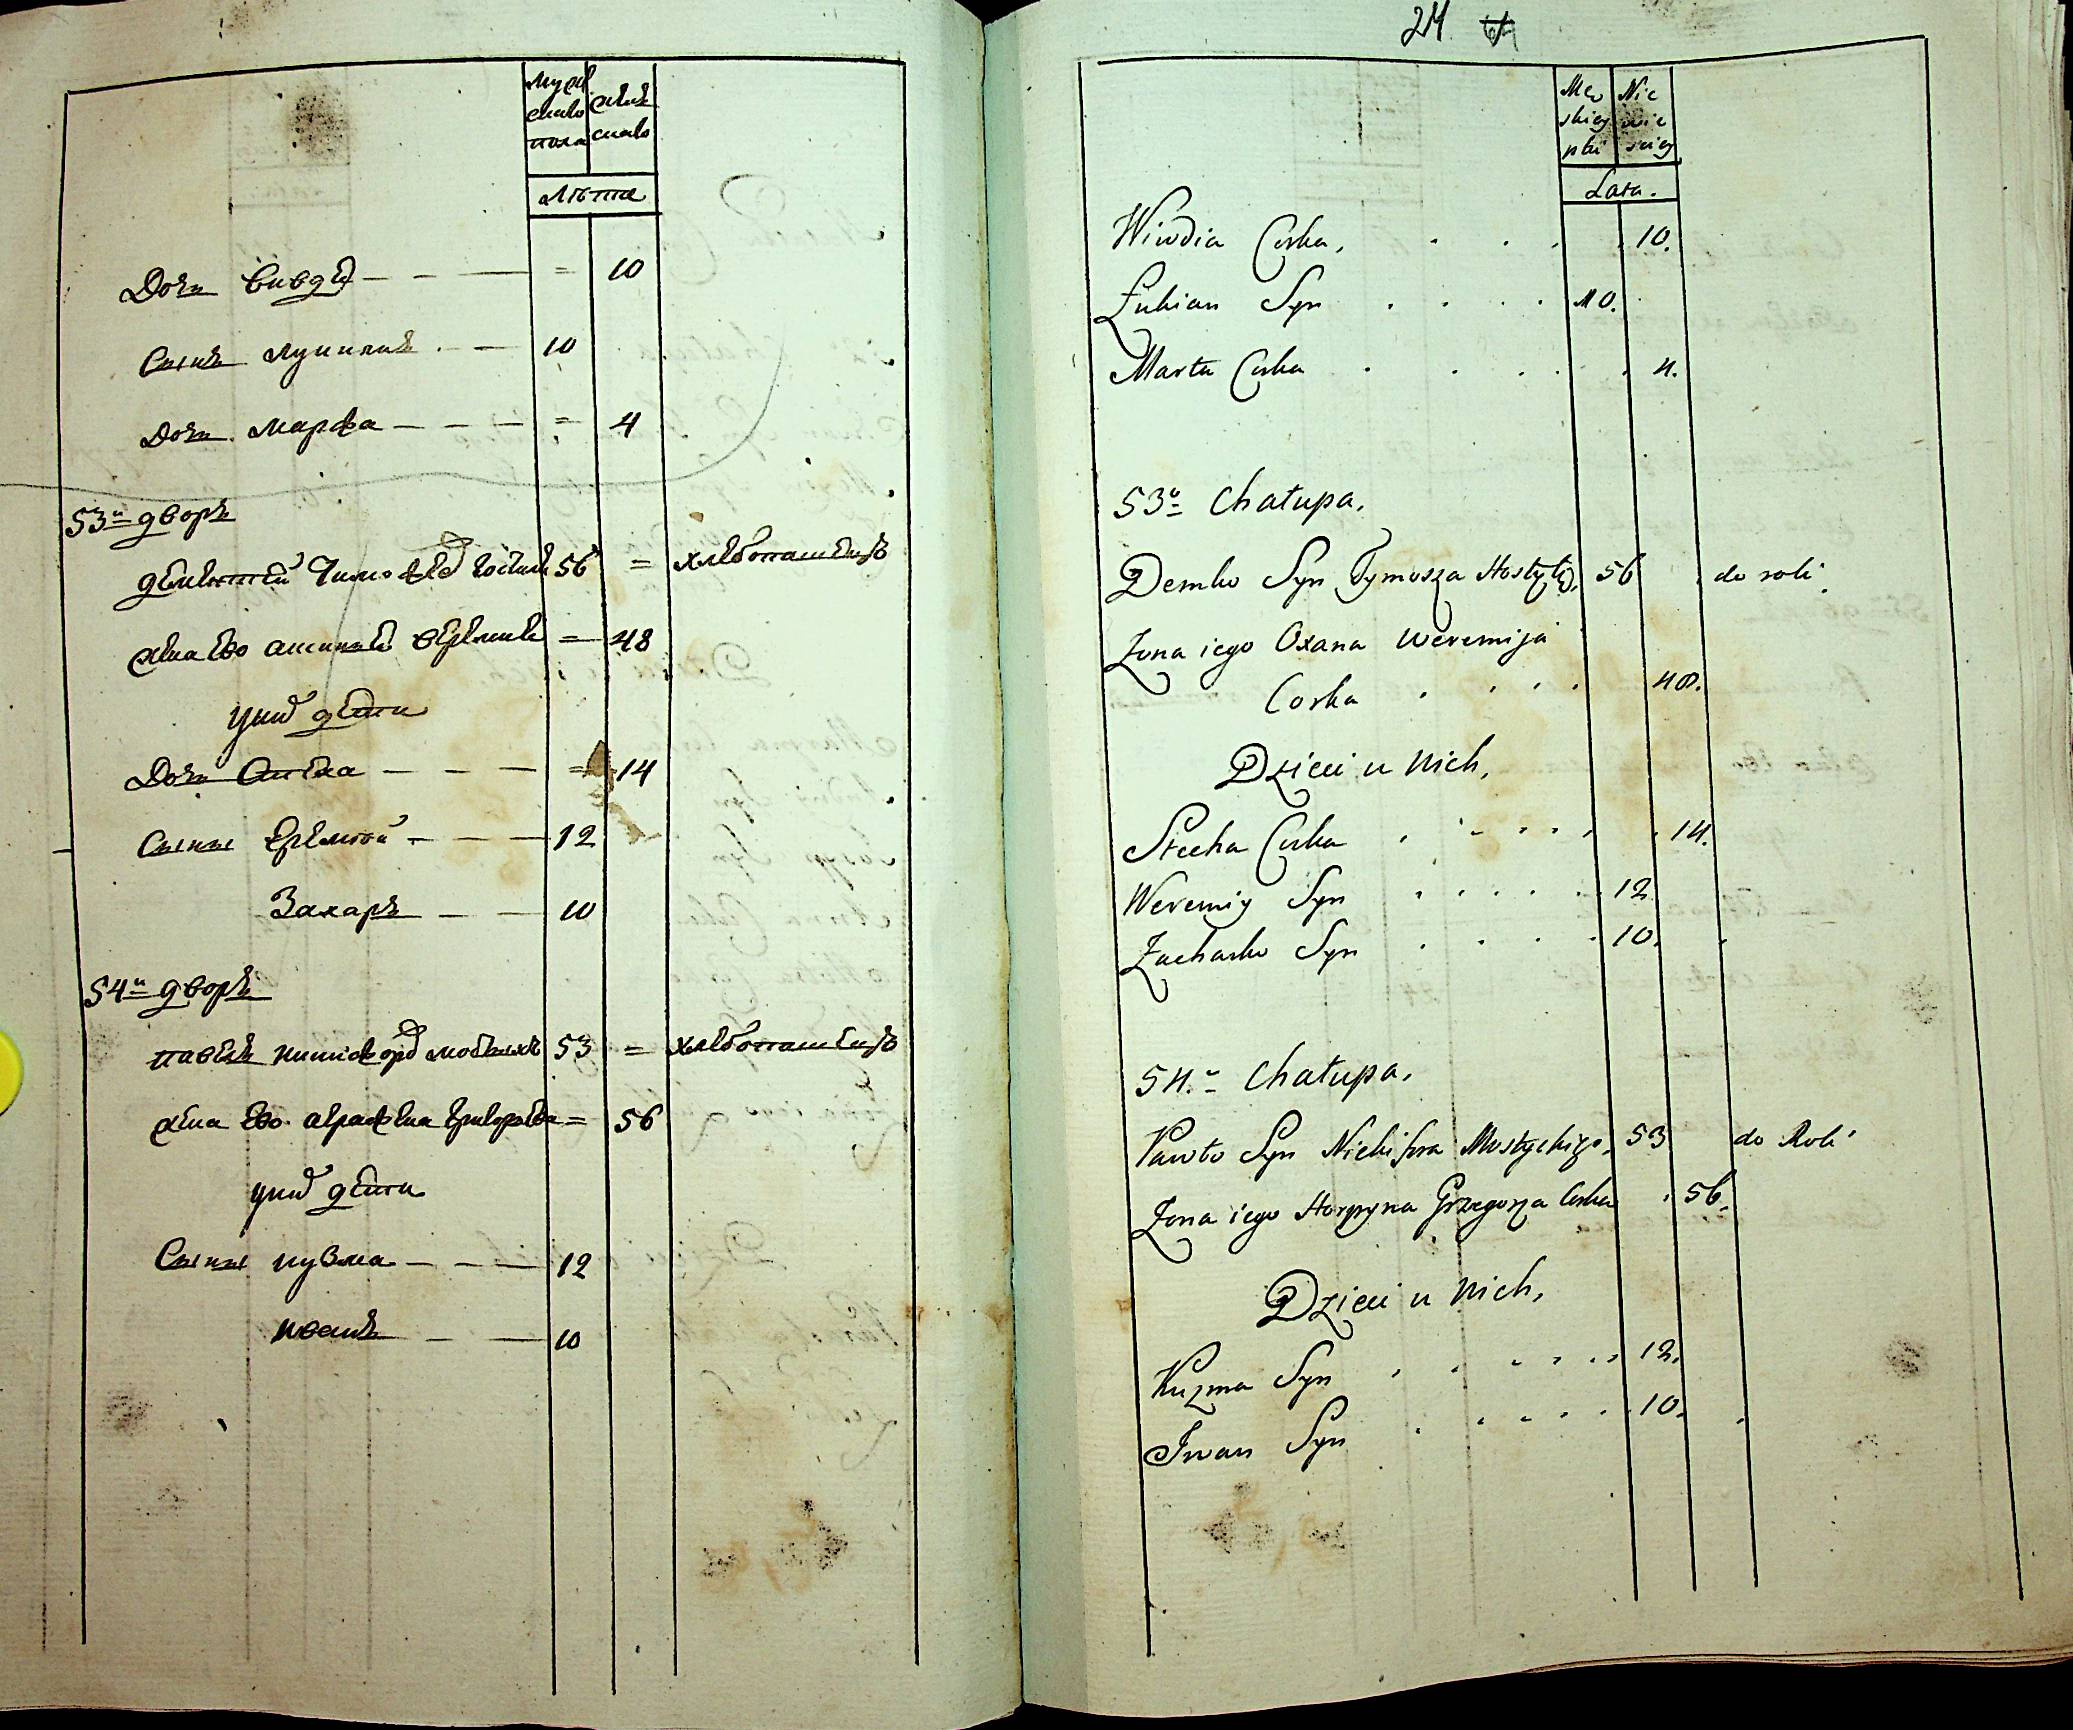 мужеска пола
женска
лѣта
дочь вивдя 10
Сынъ лукианъ 10
дочь марфа 4
53й дворъ
дементей Тимофеев 56 = хлебопашецъ
жена ево ксения 48
у них дети
дочь 14
Сыны Еремей 12
Захаръ 10
54й дворъ
павелъ никифоров 53 = хлебопашецъ
жена ево аграфена григорьева = 56
у них дети
Сыны кузма 12
иванъ 10
24
Męskiey płci
Niewieściey
Lata.
Wiwdia Corka, 10.
Łukian Syn 10.
Marta Corka 4.
53a Chałupa.
Demko Syn Tymosza 56 do roli
Zona iego Oxana Weremija
Corka 48.
Dzieci u nich,
Stecha Corka 14.
Weremiy Syn 12
Zacharko Syn 10.
54.a Chałupa.
Pawło Syn Nichifora Mostyckiego. 53 do Roli
Zona iego Horpyna Grzegorza Corka 56.
Dzieci u nich,
Kuzma Syn 12.
Iwan Syn 10.